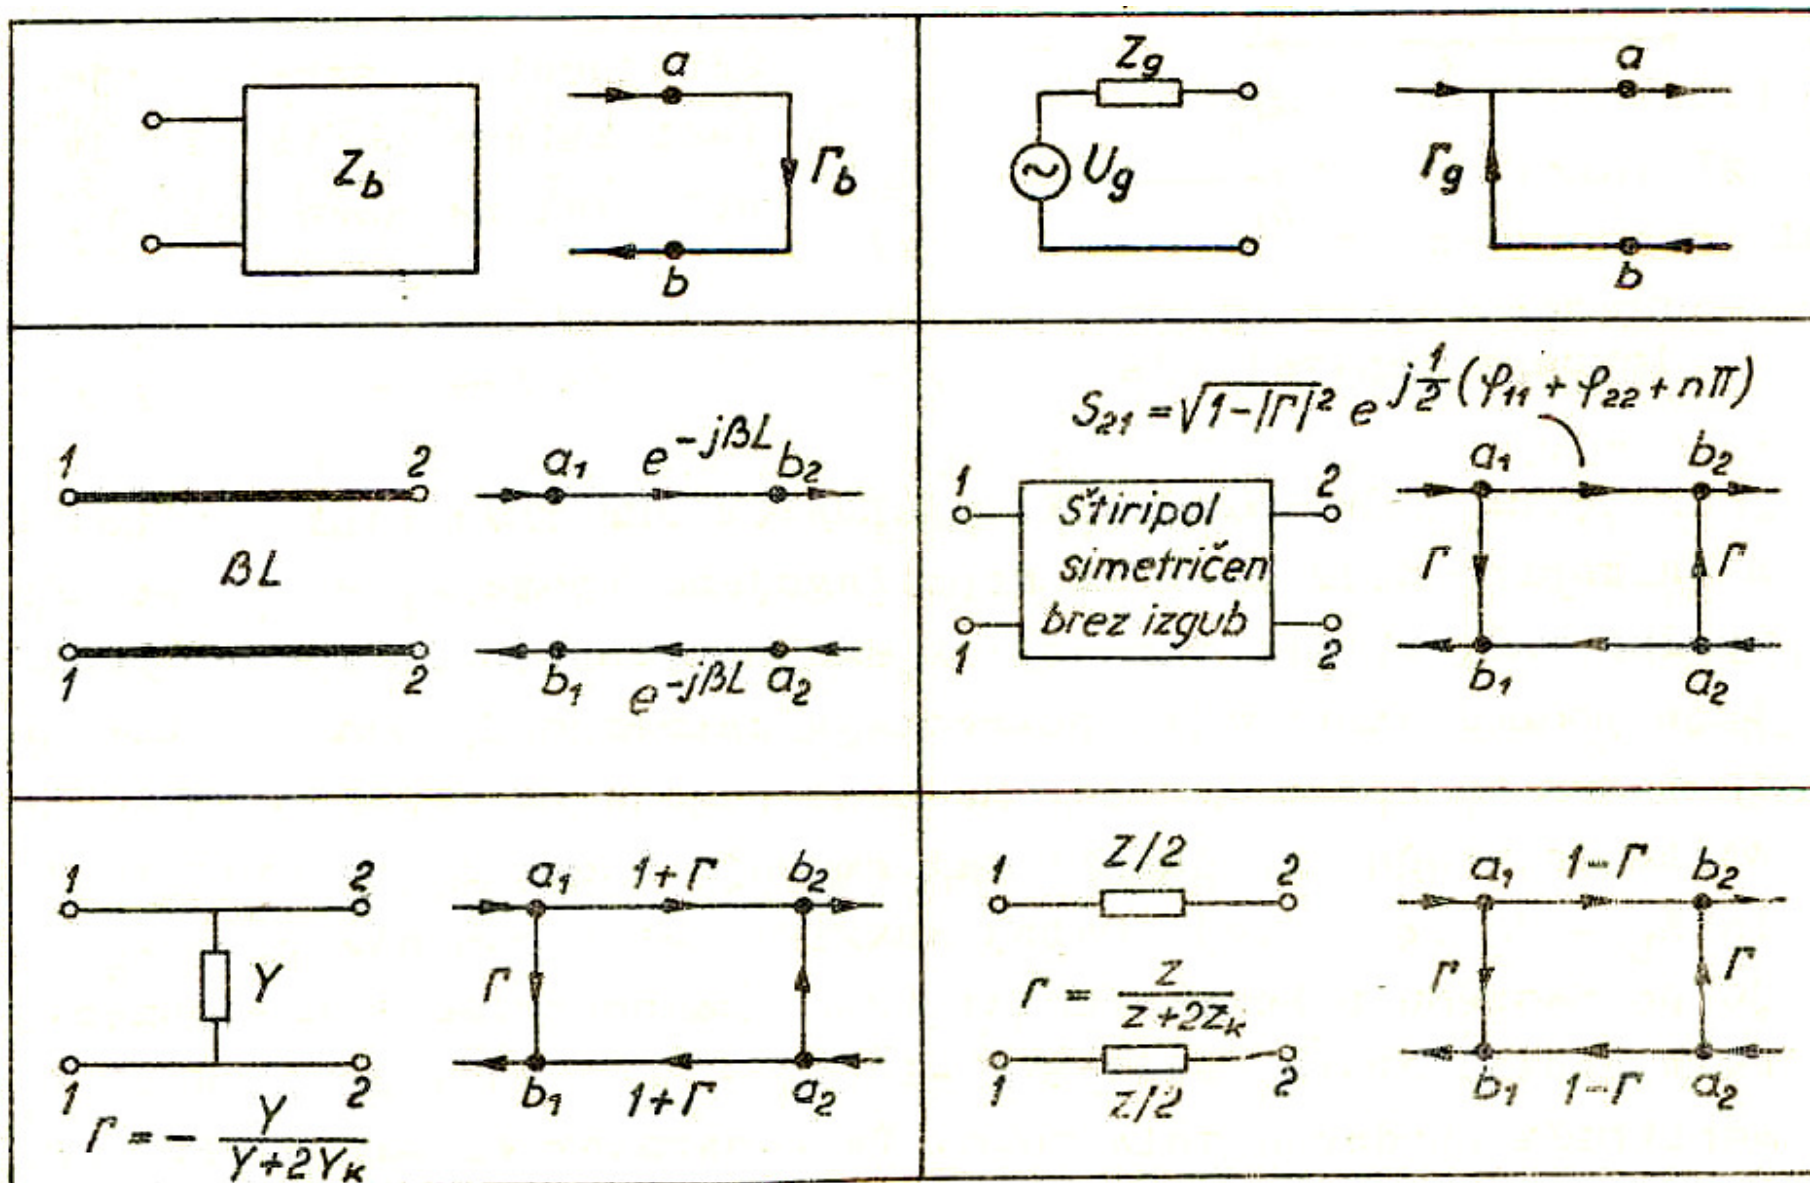 Z_b
a
Γ_b
b
Z_g
U_g
a
Γ_g
b
1 2
βL
1 2
a₁ e^{-jβL} b₂
b₁ e^{-jβL} a₂
S₂₁ = √(1-|Γ|²) e^{j\frac{1}{2}(φ₁₁ + φ₂₂ + nπ)}
1 2
štiripol
simetričen
brez izgub
1 2
a₁ b₂
Γ Γ
b₁ a₂
1 2
Y
1 2
Γ = - \frac{Y}{Y+2Y_K}
a₁ 1+Γ b₂
Γ
b₁ 1+Γ a₂
Z/2
1 2
Γ = \frac{Z}{Z+2Z_K}
1 2
Z/2
a₁ 1-Γ b₂
Γ Γ
b₁ 1-Γ a₂